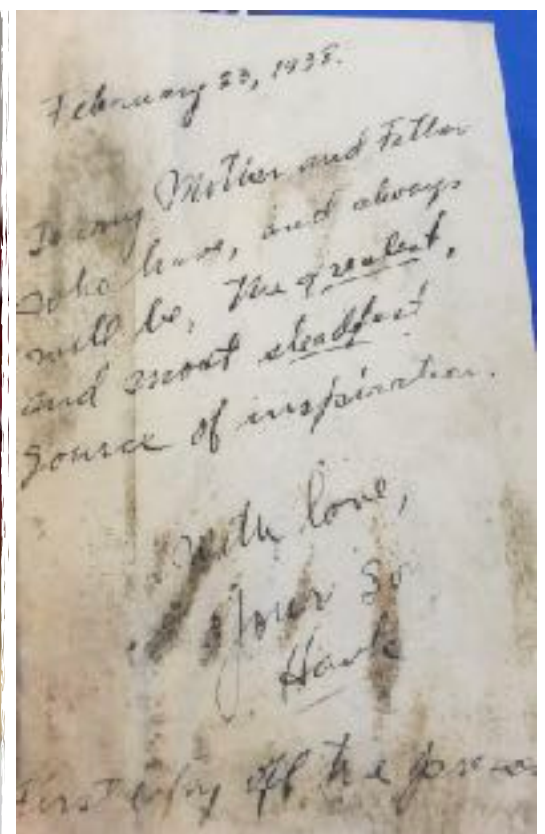 February 23, 1938.
To my Mother and Father
who have, and always
will be, the greatest,
and most steadfast
source of inspiration.
With love,
Your So
Hank
First copy off the press